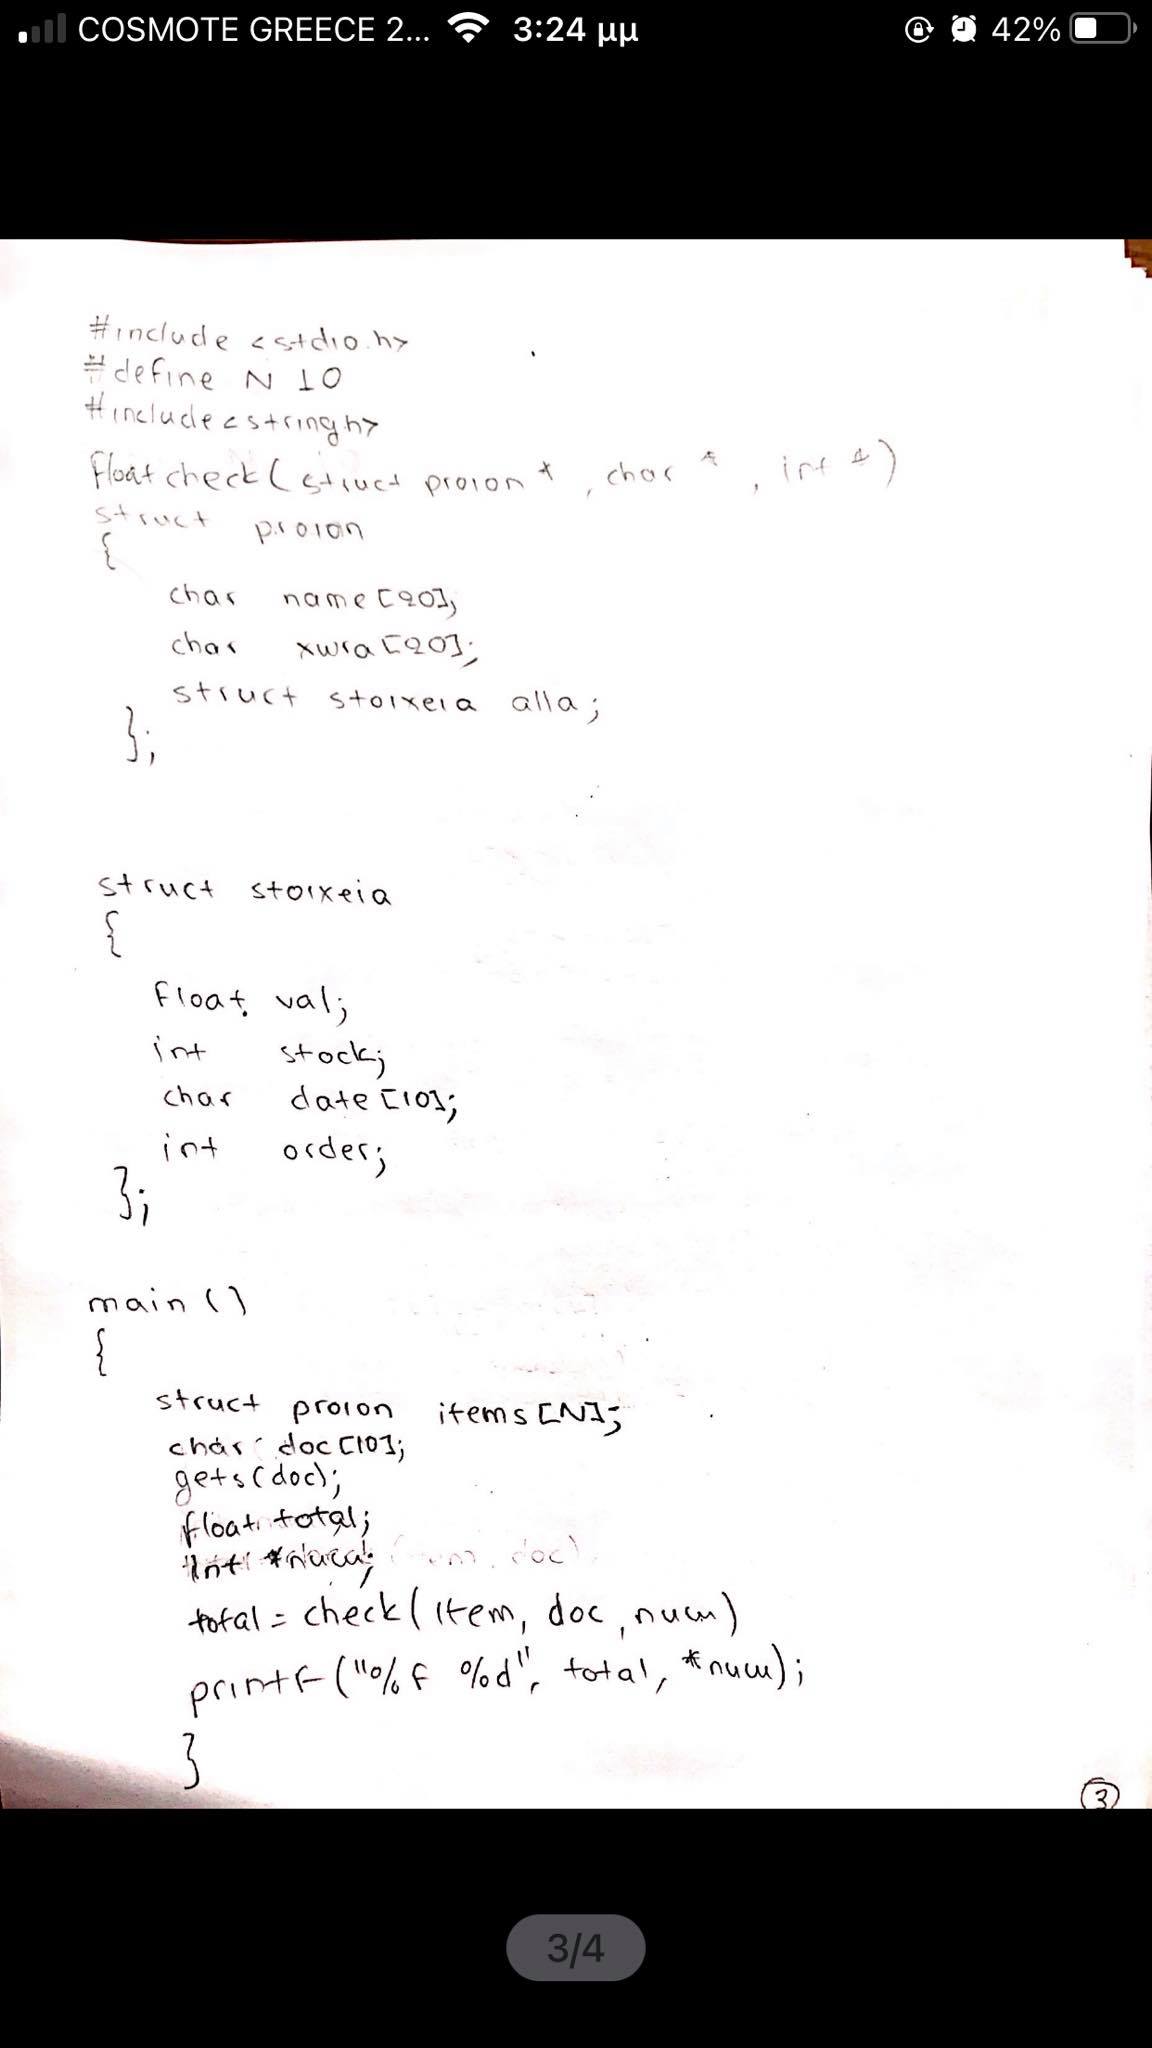 COSMOTE GREECE 2... 3:24 μμ 42%
#include <stdio.h>
#define N 10
#include<string.h>
float check( struct proion * , char * , int *)
struct proion
{
char name [20];
char xwra [20];
struct stoixeia alla;
};
struct stoixeia
{
float val;
int stock;
char date [10];
int order;
};
main ()
{
struct proion items [N];
char doc [10];
gets (doc);
float total;
int *num;
total = check( item, doc , num )
printf ("%f %d", total, *num );
}
3
3/4